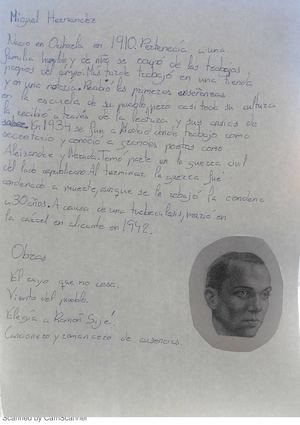 Miguel Hernandez
Nacio en Orihuela en 1910. Pertenecia a una
familia humilde y de niño se ocupo de los trabajos
propios del campo. Mas tarde trabajó en una tienda
y en una notaria. Recibió las primeras enseñanzas
en la escuela de su pueblo, pero casi toda su cultura
la recibió a través de la lectura y sus ansias de
saber. En 1934 se fue a Madrid donde trabajó como
secretario y conoció a grandes poetas como
Aleixandre y Neruda. Tomó parte en la guerra civil
del lado republicano. Al terminar la guerra fue
condenado a muerte, aunque se le rebajó la condena
a 30 años. A causa de una tuberculosis, murió en
la cárcel en alicante en 1942.
Obras
El rayo que no cesa.
Viento del pueblo.
Elegía a Ramón Sijé.
Cancionero y romancero de ausencias.
Scanned by CamScanner